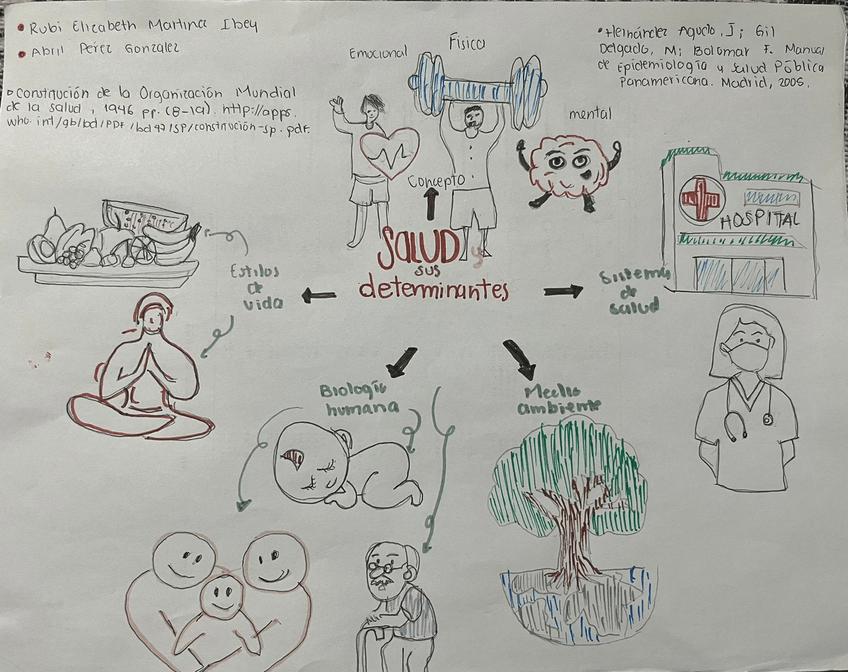 • Rubi Elizabeth Martinez Ibey
• Abril Perez Gonzalez
• Constitución de la Organización Mundial
de la salud, 1946 pp. (8-19). http://apps.
who.int/gb/bd/PDF/bd47/SP/constitución-sp.pdf.
• Hernández Aguado, J; Gil
Delgado, M; Bolumar F. Manual
de Epidemiología y Salud Pública
Panamericana. Madrid, 2005.
Emocional
Físico
mental
Concepto
SALUD y
sus
determinantes
Estilos
de
vida
Sistemas
de
salud
HOSPITAL
Biología
humana
Medio
ambiente